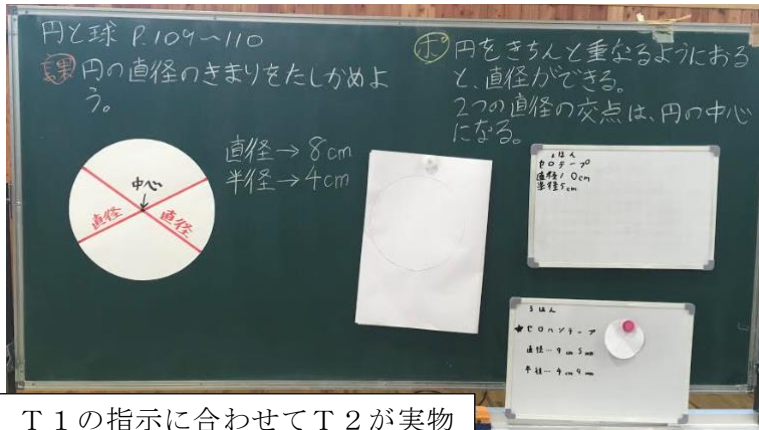 円と球 P.109〜110
課 円の直径のきまりをたしかめよ
う。
中心
直径
直径
直径→8cm
半径→4cm
ポ 円をきちんと重なるようにおる
と、直径ができる。
2つの直径の交点は、円の中心
になる。
セロテープ
直径10cm
半径5cm
5はん
★セロハンテープ
直径…9cm5mm
半径…4cm9mm
T1の指示に合わせてT2が実物